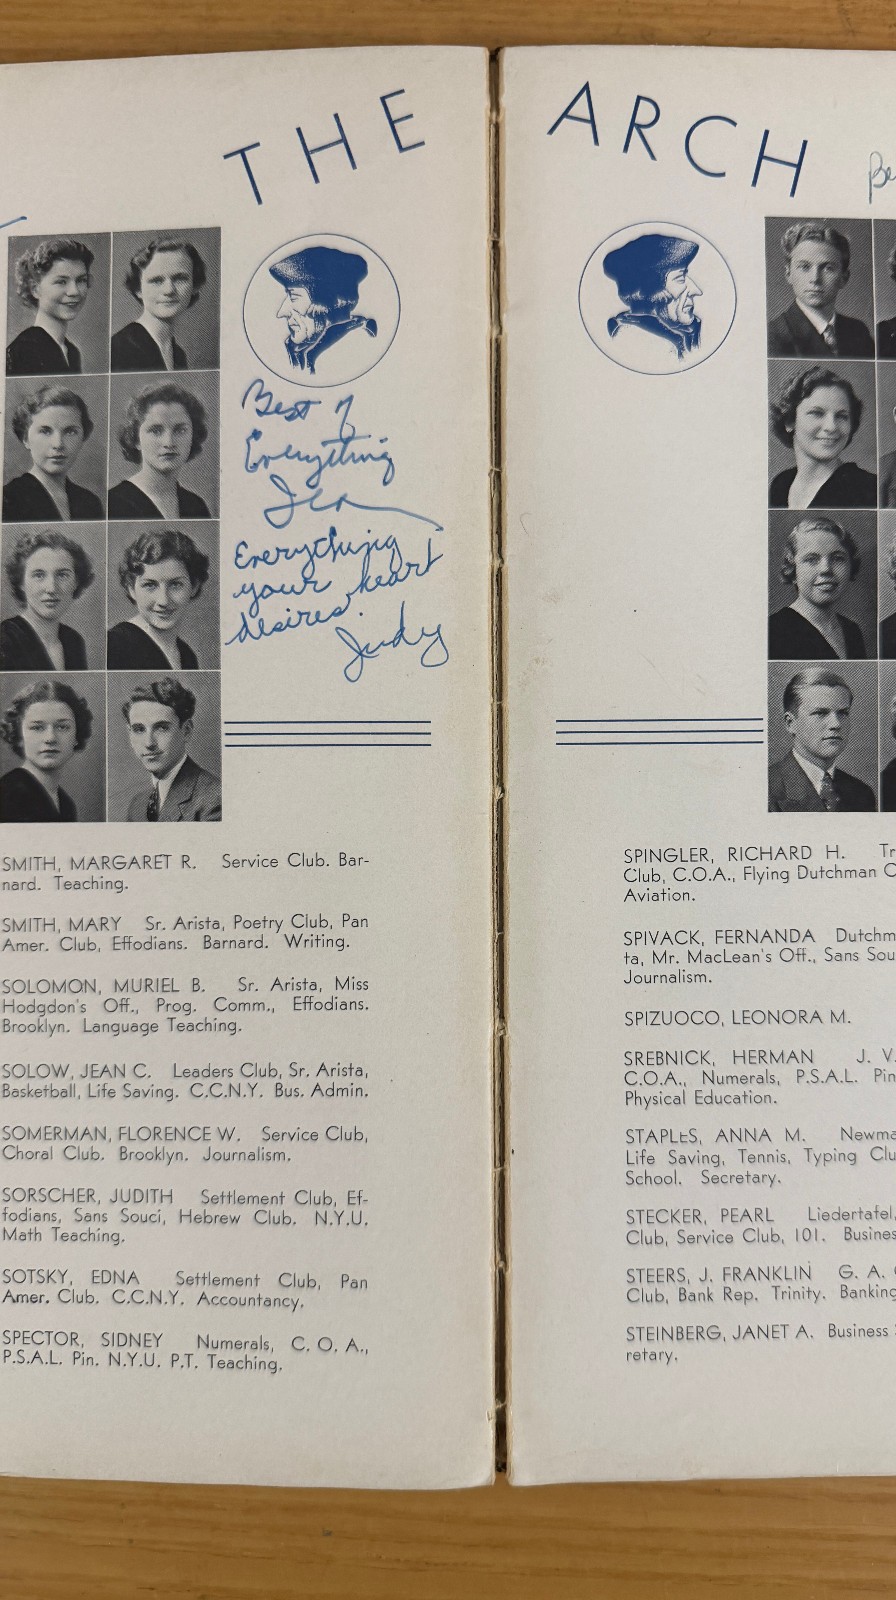 THE ARCH
Best of
Everything
Jean
Everything
your heart
desires.
Judy
SMITH, MARGARET R. Service Club. Bar-
nard. Teaching.
SMITH, MARY Sr. Arista, Poetry Club, Pan
Amer. Club, Effodians. Barnard. Writing.
SOLOMON, MURIEL B. Sr. Arista, Miss
Hodgdon's Off., Prog. Comm., Effodians.
Brooklyn. Language Teaching.
SOLOW, JEAN C. Leaders Club, Sr. Arista,
Basketball, Life Saving. C.C.N.Y. Bus. Admin.
SOMERMAN, FLORENCE W. Service Club,
Choral Club. Brooklyn. Journalism.
SORSCHER, JUDITH Settlement Club, Ef-
fodians, Sans Souci, Hebrew Club. N.Y.U.
Math Teaching.
SOTSKY, EDNA Settlement Club, Pan
Amer. Club. C.C.N.Y. Accountancy.
SPECTOR, SIDNEY Numerals, C. O. A.,
P.S.A.L. Pin. N.Y.U. P.T. Teaching.
Be
SPINGLER, RICHARD H. Tr
Club, C.O.A., Flying Dutchman C
Aviation.
SPIVACK, FERNANDA Dutchm
ta, Mr. MacLean's Off., Sans Sou
Journalism.
SPIZUOCO, LEONORA M.
SREBNICK, HERMAN J. V.
C.O.A., Numerals, P.S.A.L. Pin
Physical Education.
STAPLES, ANNA M. Newma
Life Saving, Tennis, Typing Clu
School. Secretary.
STECKER, PEARL Liedertafel,
Club, Service Club, 101. Business
STEERS, J. FRANKLIN G. A.
Club, Bank Rep. Trinity. Banking
STEINBERG, JANET A. Business
retary.